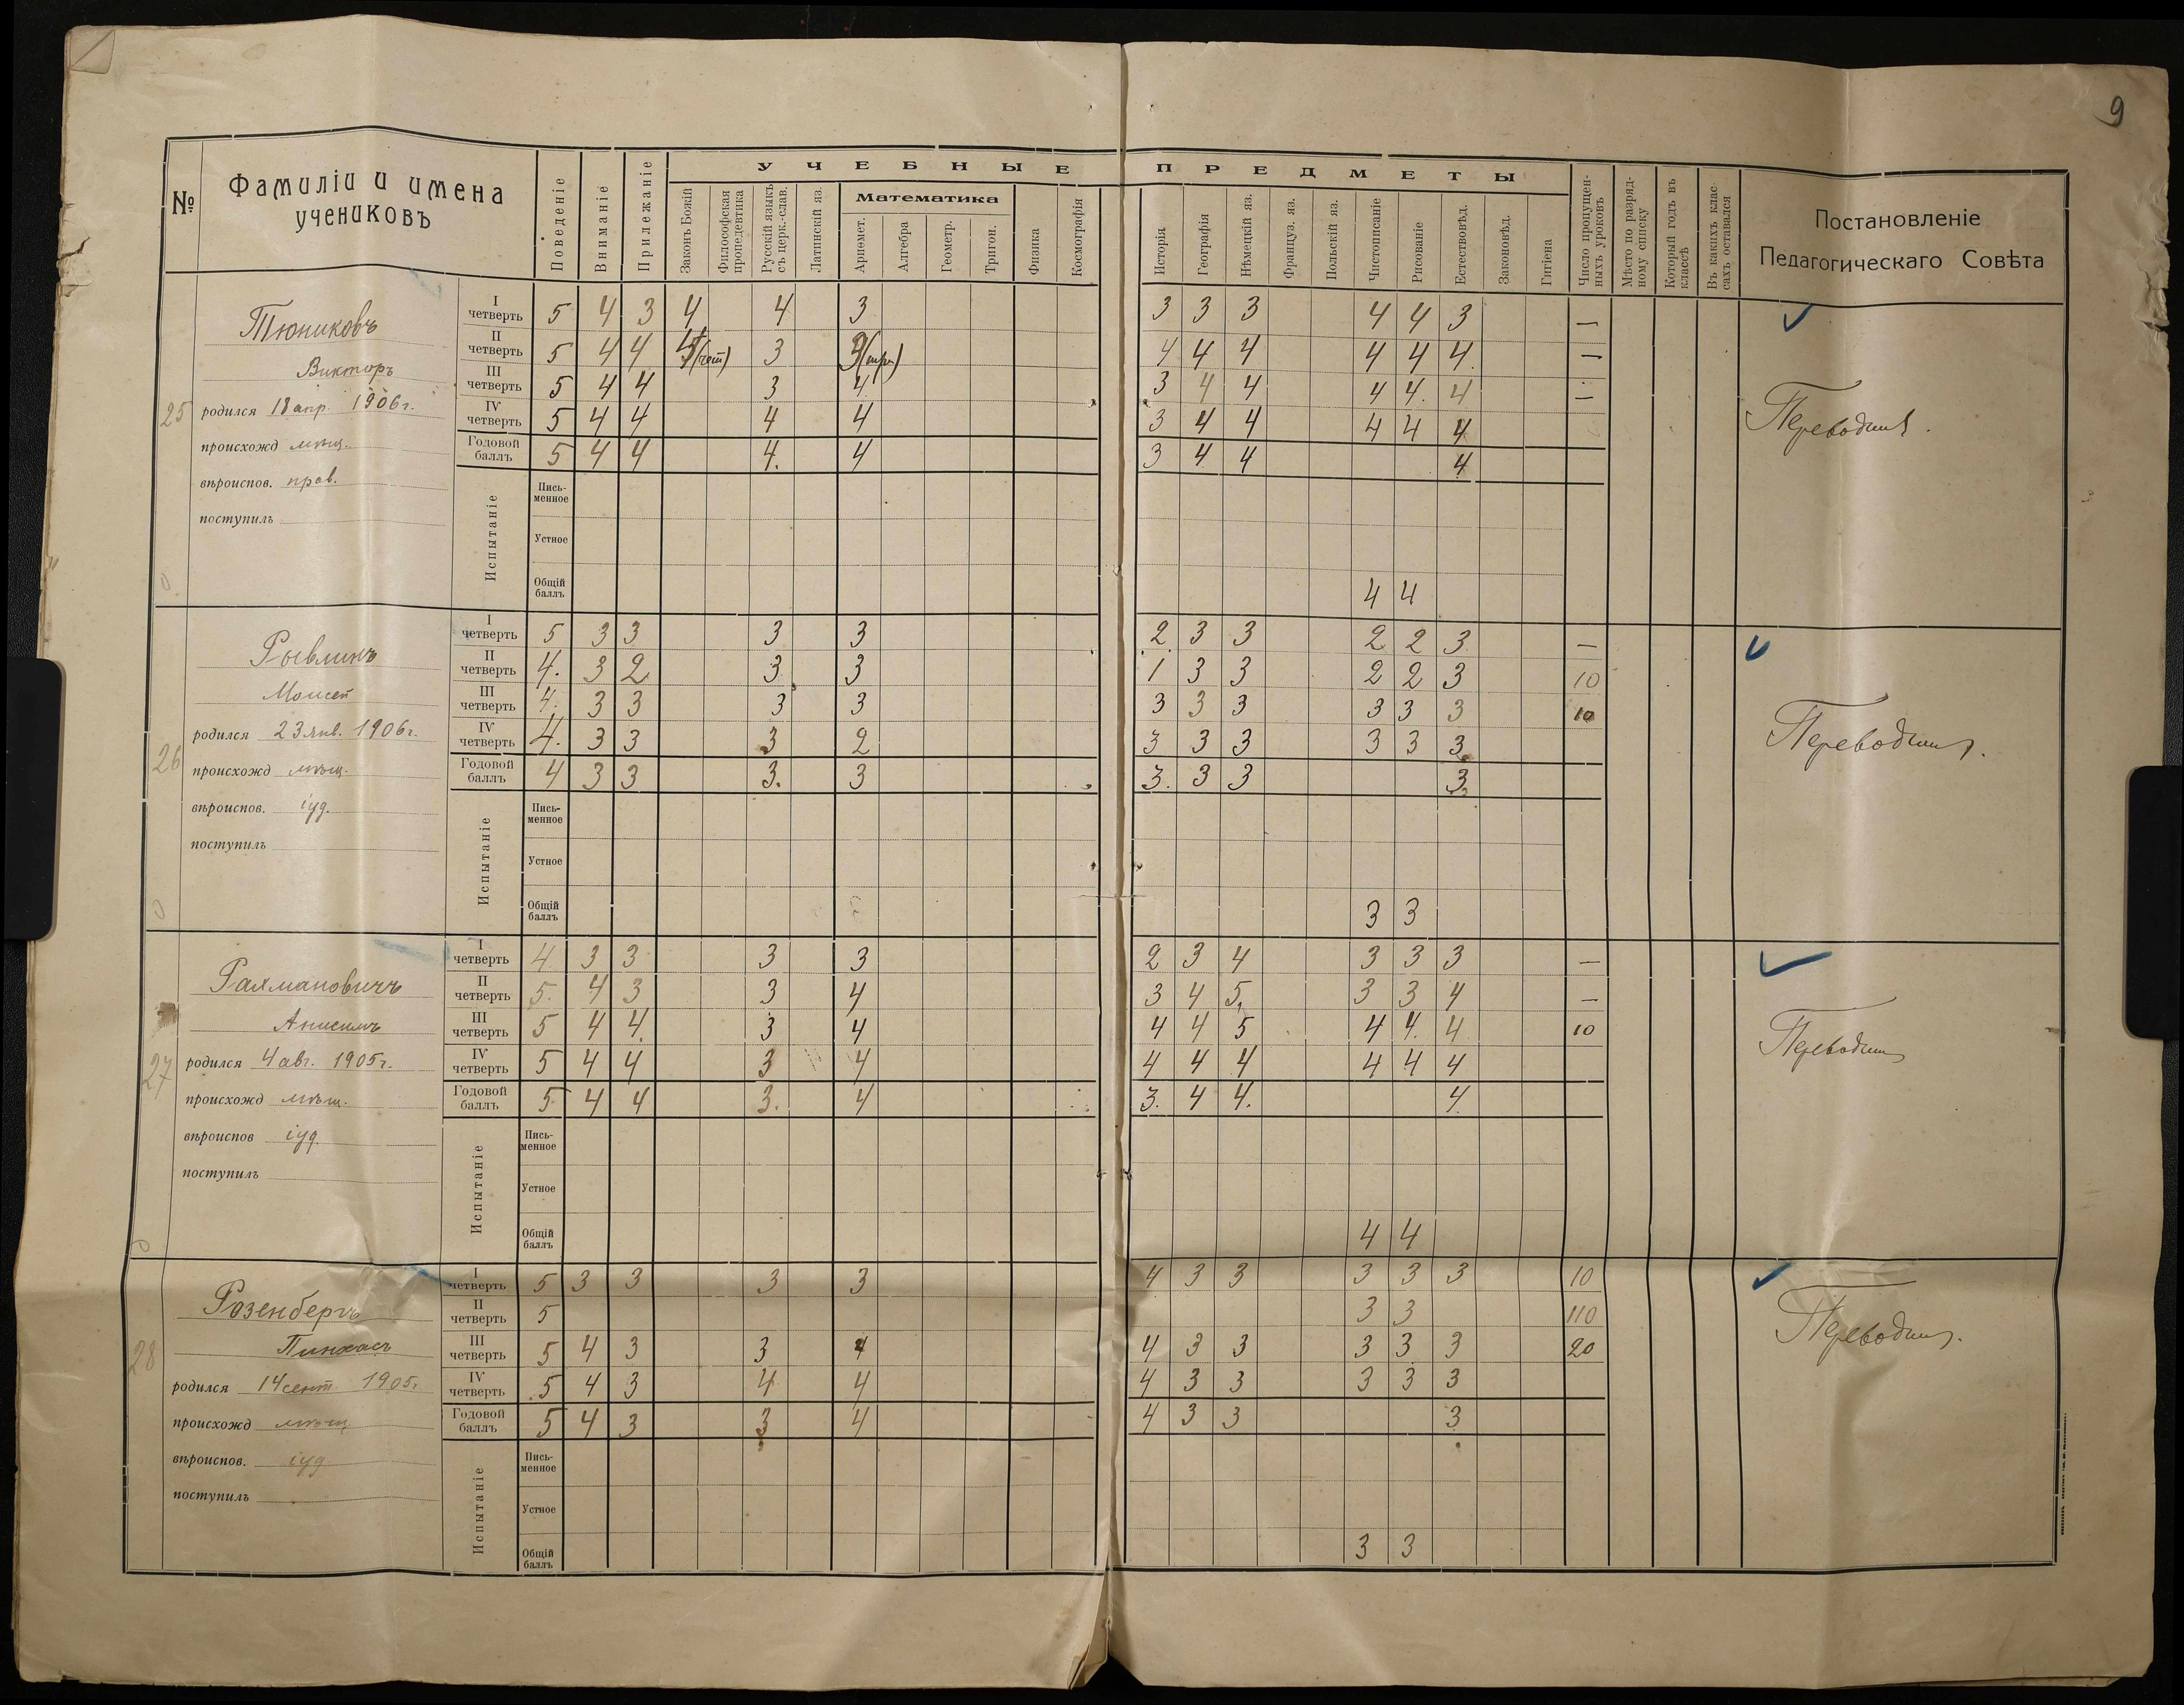 9
№ Фамиліи и имена учениковъ Поведеніе Вниманіе Прилежаніе УЧЕБНЫЕ ПРЕДМЕТЫ Число пропущенныхъ уроковъ Мѣсто по разрядному списку Который годъ въ классѣ Въ какихъ классахъ оставался Постановленіе Педагогическаго Совѣта
Законъ Божій Философская пропедевтика Русскій языкъ съ церк.-слав. Латинскій яз. Математика Ариѳмет. Алгебра Геометр. Тригон. Физика Космографія Исторія Географія Нѣмецкій яз. Француз. яз. Польскій яз. Чистописаніе Рисованіе Естествовѣд. Законовѣд. Гигіена
25
Тюниковъ
Викторъ
родился 18 апр. 1906 г.
происхожд мѣщ.
вѣроиспов. прав.
поступилъ
I четверть 5 4 3 4 4 3 3 3 3 4 4 3 —
II четверть 5 4 4 3 4 4 4 4 4 4 —
III четверть 5 4 4 3 4 3 4 4 4 4. 4 —
IV четверть 5 4 4 4 4 3 4 4 4 4 4
Годовой баллъ 5 4 4 4. 4 3 4 4 4
Испытаніе
Письменное
Устное
Общій баллъ 4 4
Переводится.
26
Рывлинъ
Моисей
родился 23 янв. 1906 г.
происхожд мѣщ.
вѣроиспов. іуд.
поступилъ
I четверть 5 3 3 3 3 2 3 3 2 2 3 —
II четверть 4. 3 2 3 3 1 3 3 2 2 3 10
III четверть 4. 3 3 3 3 3 3 3 3 3 3 10
IV четверть 4. 3 3 3 2 3 3 3 3 3 3
Годовой баллъ 4 3 3 3. 3 3. 3 3 3
Испытаніе
Письменное
Устное
Общій баллъ 3 3
Переводится.
27
Рахмановичъ
Анисимъ
родился 4 авг. 1905 г.
происхожд мѣщ.
вѣроиспов іуд.
поступилъ
I четверть 4 3 3 3 3 2 3 4 3 3 3 —
II четверть 5. 4 3 3 4 3 4 5. 3 3 4 —
III четверть 5 4 4. 3 4 4 4 5 4 4. 4 10
IV четверть 5 4 4 3 4 4 4 4 4 4 4
Годовой баллъ 5 4 4 3. 4 3. 4 4. 4
Испытаніе
Письменное
Устное
Общій баллъ 4 4
Переводится
28
Розенбергъ
Пинхасъ
родился 14 сент. 1905 г.
происхожд мѣщ.
вѣроиспов. іуд
поступилъ
I четверть 5 3 3 3 3 4 3 3 3 3 3 10
II четверть 5 3 3 110
III четверть 5 4 3 3 4 4 3 3 3 3 3 20
IV четверть 5 4 3 4 4 4 3 3 3 3 3
Годовой баллъ 5 4 3 3 4 4 3 3 3
Испытаніе
Письменное
Устное
Общій баллъ 3 3
Переводится.